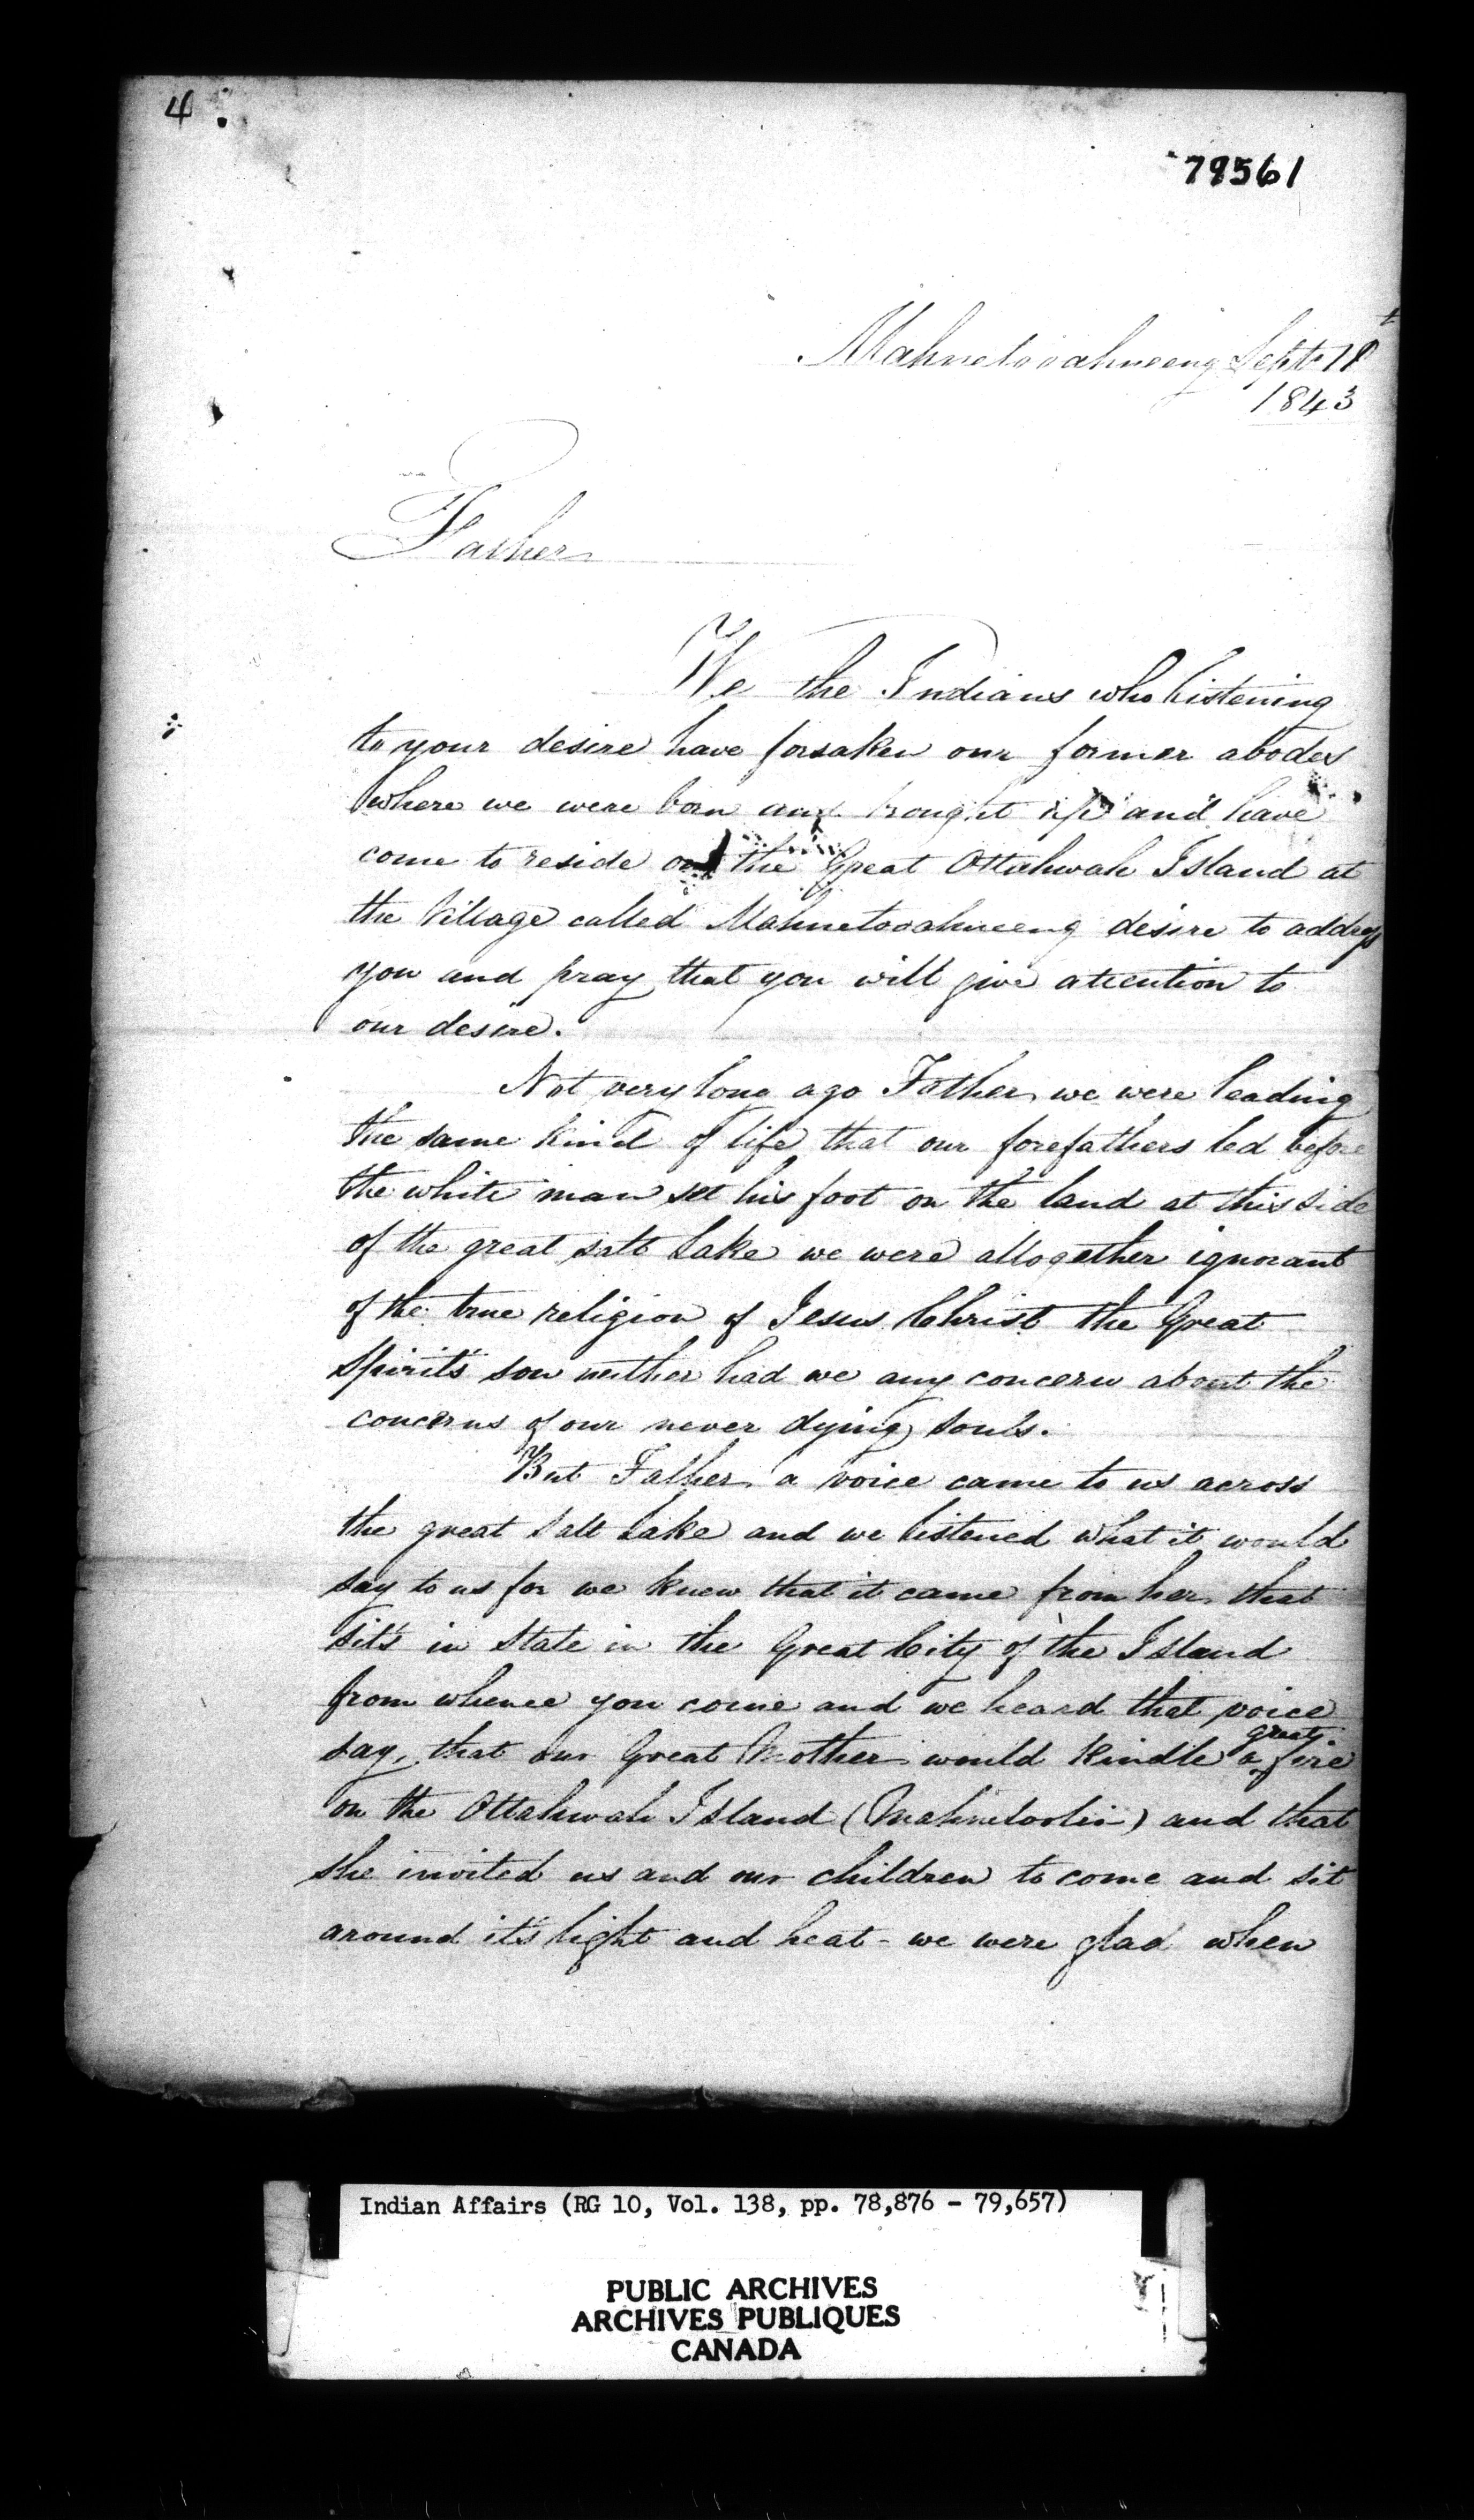 4
79561
Mahnetooahneeng Septr 18t
1843
Father
We the Indians who listening
to your desire have forsaken our former abodes
where we were born and brought up and have
come to reside on the Great Ottahwah Island at
the Village called Mahnetooahneeng desire to address
you and pray that you will give attention to
our desire.
Not very long ago Father we were leading
the same kind of life that our forefathers led before
the white man set his foot on the land at this side
of the great salt Lake we were altogether ignorant
of the true religion of Jesus Christ the Great
Spirit's son neither had we any concern about the
concerns of our never dying souls.
But Father a voice came to us across
the great salt Lake and we listened what it would
say to us for we knew that it came from her that
sit's in state in the Great City of the Island
from whence you come and we heard that voice
say, that our Great Mother would kindle a great fire
on the Ottahwah Island (Mahnetoolin) and that
she invited us and our children to come and sit
around it's light and heat - we were glad when
Indian Affairs (RG 10, Vol. 138, pp. 78,876 - 79,657)
PUBLIC ARCHIVES
ARCHIVES PUBLIQUES
CANADA